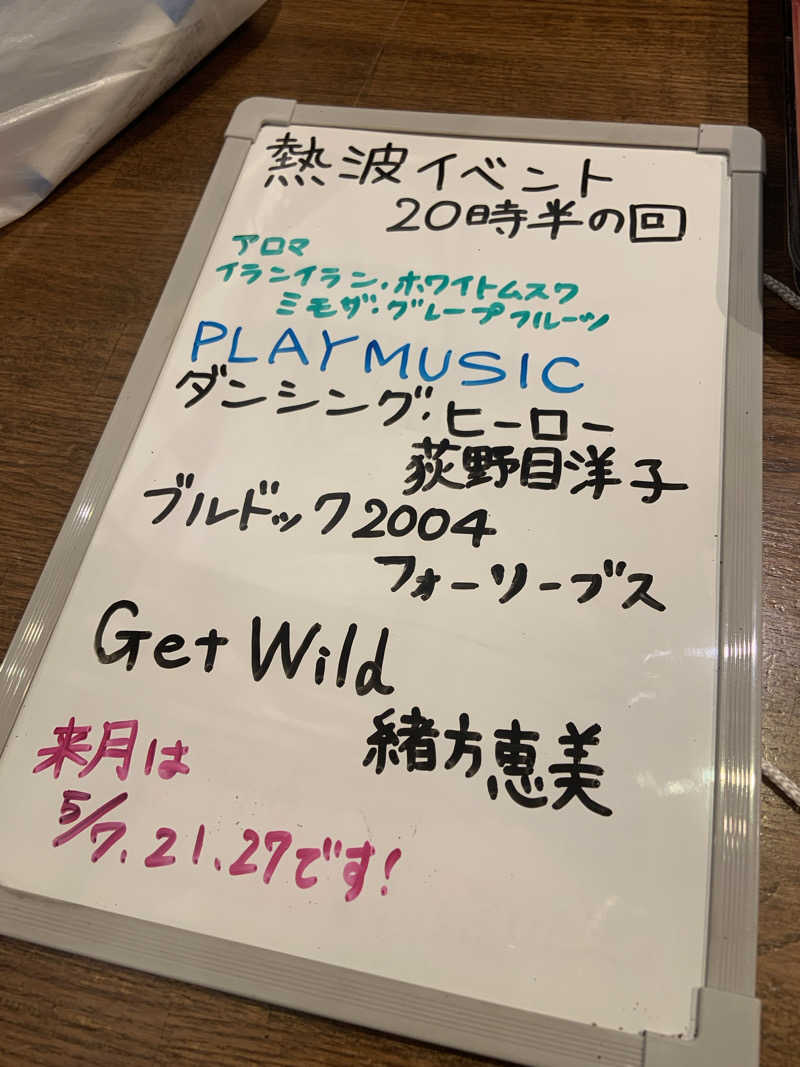 熱波イベント
20時半の回
アロマ
イランイラン・ホワイトムスク
ミモザ・グレープフルーツ
PLAY MUSIC
ダンシング・ヒーロー
荻野目洋子
ブルドック2004
フォーリーブス
Get Wild
緒方恵美
来月は
5/7、21、27です!